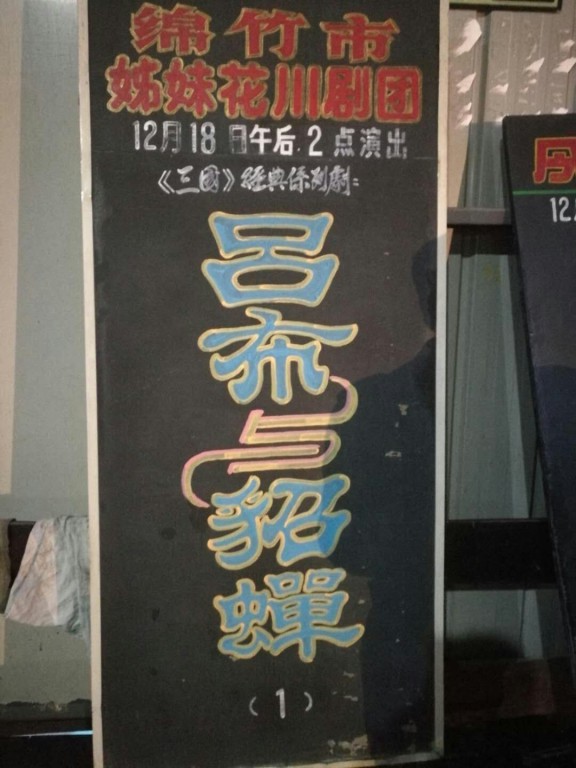 绵竹市
姊妹花川剧团
12月18日午后.2点演出
《三國》經典係列劇:
吕布
与
貂蟬
(1)
丹
12